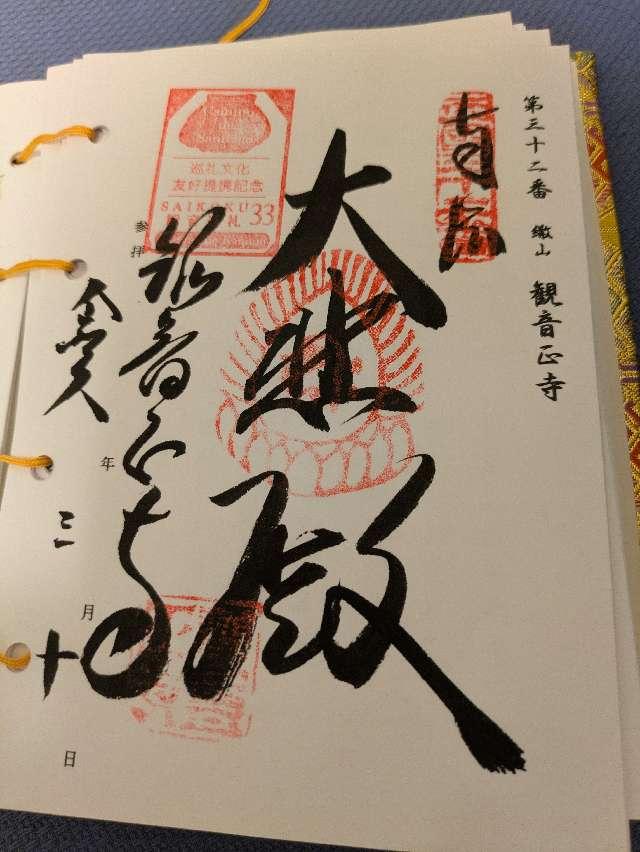 第三十二番 繖山 観音正寺
奉拝
大悲殿
観音正寺
参拝
令和六年三月十日
Camino
de
Santiago
巡礼文化
友好提携記念
SAIKOKU
33